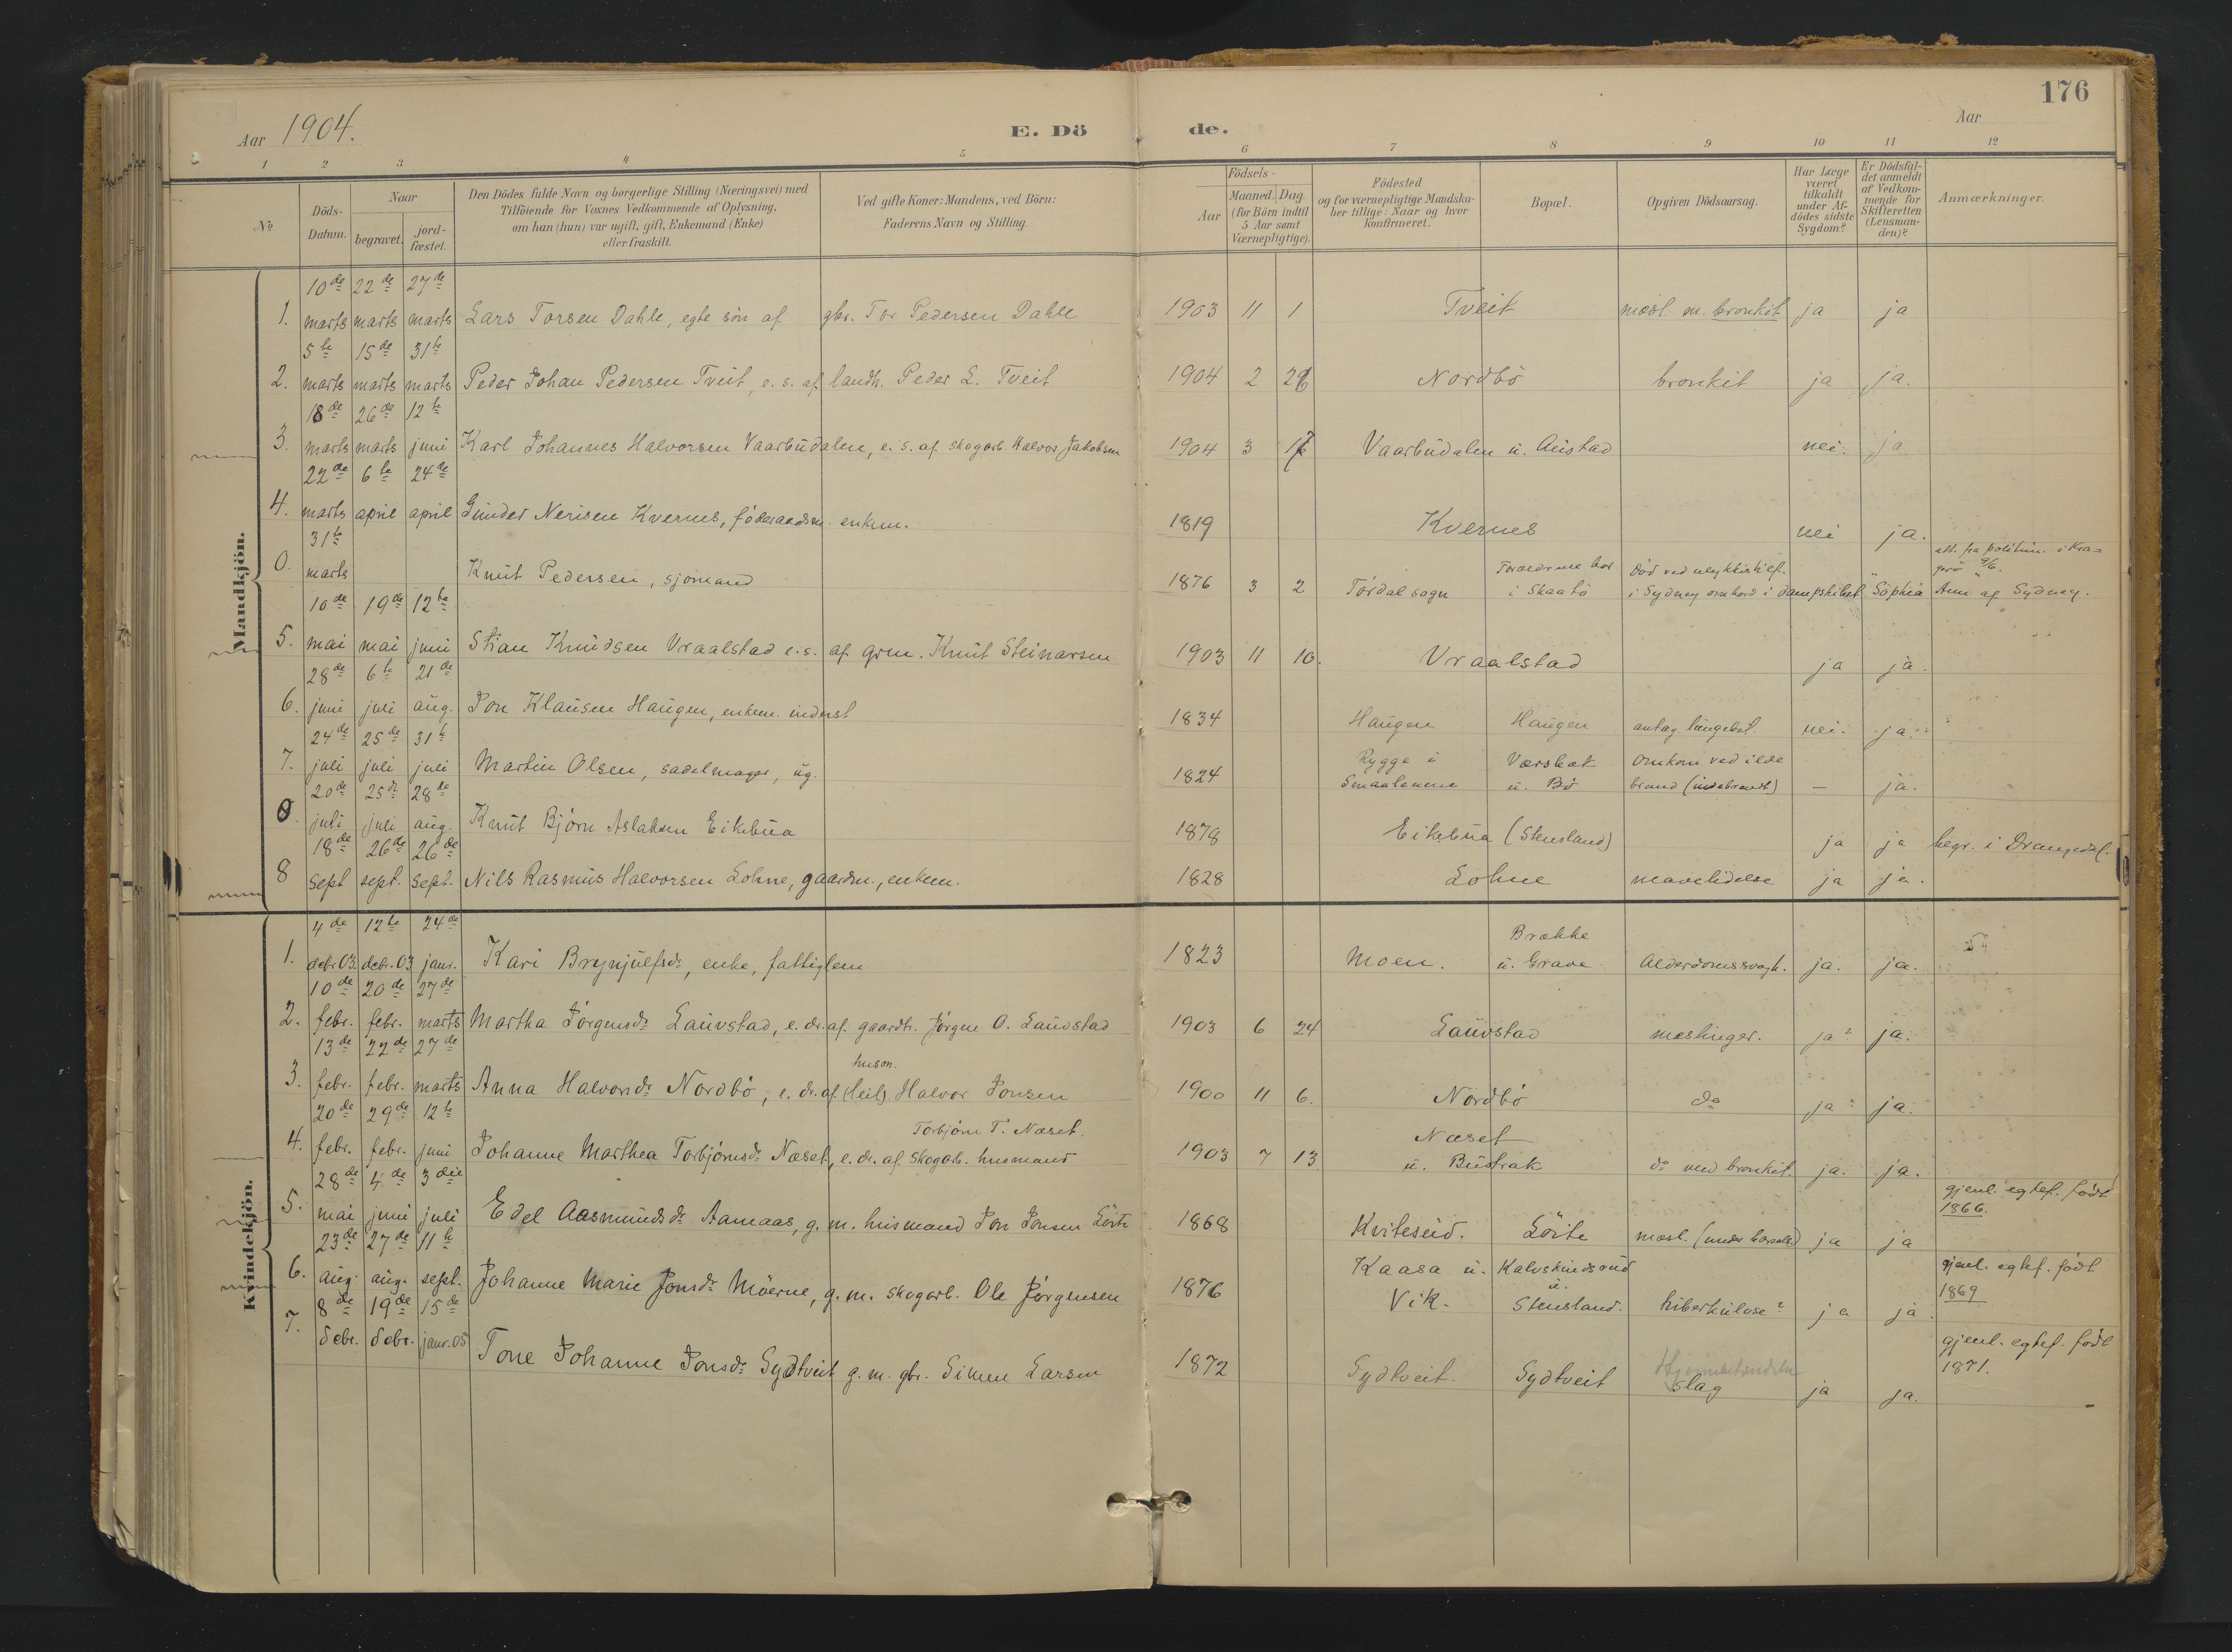 176
Aar 1904.
E. Dö de.
Aar
1 2 3 4 5 6 7 8 9 10 11 12
No
Döds-Datum.
Naar
begravet.
jord-fæstet.
Den Dödes fulde Navn og borgerlige Stilling (Næringsvei) med
Tilföiende for Voxnes Vedkommende af Oplysning,
om han (hun) var ugift, gift, Enkemand (Enke)
eller fraskilt.
Ved gifte Koner: Mandens, ved Börn:
Faderens Navn og Stilling.
Födsels-
Aar
Maaned. Dag.
(for Börn indtil
5 Aar samt
Værnepligtige).
Födested
og for værnepligtige Mandska-
ber tillige: Naar og hvor
konfirmeret.
Bopæl.
Opgiven Dödsaarsag.
Har Læge
været
tilkaldt
under Af-
dödes sidste
Sygdom?
Er Dödsfal-
det anmeldt
af Vedkom-
mende for
Skifteretten
(Lensman-
den)?
Anmærkninger.
Mandkjön.
10de 22de 27de
1. marts marts marts Lars Torsen Dahle, egte søn af gbr. Tor Pedersen Dahle 1903 11 1 Tveit mesl. m. bronkit ja ja
5te 15de 31te
2. marts marts marts Peder Johan Pedersen Tveit, e. s. af landh. Peder L. Tveit 1904 2 26 Nordbö bronkit ja ja.
18de 26de 12te
3. marts marts juni Karl Johannes Halvorsen Vaarbudalen, e. s. af skogarb. Halvor Jakobsen 1904 3 Vaarbudalen u. Austad nei. ja.
22de 6te 24de
4. marts april april Gunder Nerisen Kvernes, föderaadsm. enkem. 1819 Kvernes nei ja.
31te
0. marts Knut Pedersen, sjömand 1876 3 2 Tördal sogn Forældrene bor i Skaatö Död ved ulykkestilf. i Sydney ombord i dampskibet "Sophia Ann" af Sydney.
att. fra politim. i Kra-
gerö 9/6.
10de 19de 12te
5. mai mai juni Stian Knudsen Vraalstad e. s. af grm. Knut Steinarsen 1903 11 10. Vraalstad ja ja.
28de 6te 21de
6. juni juli aug. Jon Klausen Haugen, enkem. inderst 1834 Haugen Haugen antag. lungebet. nei. ja.
24de 25de 31te
7. juli juli juli Martin Olsen, sadelmager, ug. 1824 Rygge i Smaalenene Værskot u. Bö omkom ved ildebrand (indebrændt) — ja.
20de 25de 28de
0. juli juli aug. Knut Björn Aslaksen Eikebua 1878 Eikebua (Stensland) ja ja begr. i Drangedal.
18de 26de 26de
8 sept sept. sept. Nils Rasmus Halvorsen Lohne, gaardm., enkem. 1828 Lohne mavelidelse ja ja.
Kvindekjön.
4de 12te 24de
1. debr. 03. debr. 03 janr. Kari Brynjulfsdr, enke, fattiglem 1823 Moen. Brække u. Grave Alderdomssvagh. ja. ja.
10de 20de 27de
2. febr. febr. marts Martha Jörgensdr Lauvstad, e. dr. af gaardbr. Jörgen O. Lauvstad 1903 6 24 Lauvstad meslinger. ja? ja.
13de 22de 27de
3. febr. febr. marts Anna Halvorsdr Nordbö, e. dr. af husm. (leil) Halvor Jonsen 1900 11 6. Nordbö do ja? ja.
20de 29de 12te
4. febr. febr. juni Johanne Marthea Torbjörnsdr Næset, e. dr. af skogarb. husmand Torbjörn T. Næset. 1903 7 13 Næset u. Bustrak do med bronkit. ja. ja.
28de 4de 3die
5. mai juni juli Edel Aasmundsdr Aamaas, g. m. husmand Jon Jonsen Löite 1868 Kviteseid. Löite mesl. (under barsel) ja ja
gjenl. egtef. född
1866.
23de 27de 11te
6. aug. aug. sept. Johanne Marie Jonsdr Möerne, g. m. skogarb. Ole Jörgensen 1876 Kaasa u. Vik. Kalvskindsrud u. Stensland. tuberkulose? ja ja.
gjenl. egtef. födt
1869
8de 19de 15de
7. debr. debr. janr. 05 Tone Johanne Jonsdr Sydtveit g. m. gbr. Simen Larsen 1872 Sydtveit. Sydtveit slag ja ja.
gjenl. egtef. födt
1871.